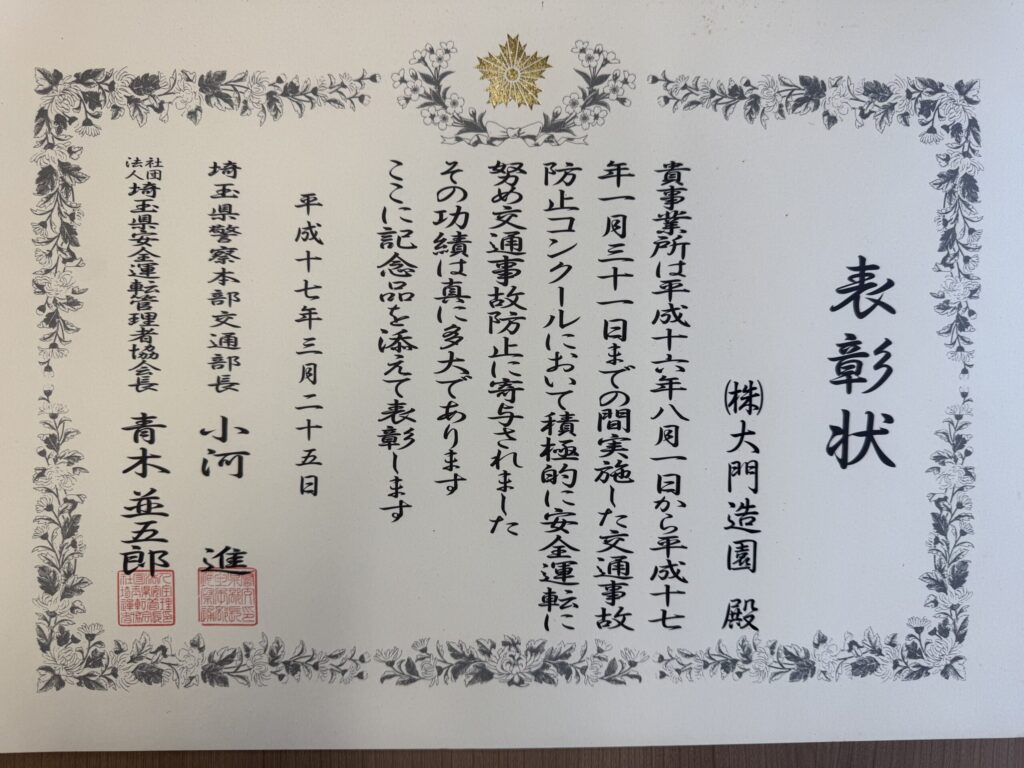 表彰状
㈱大門造園 殿
貴事業所は平成十六年八月一日から平成十七
年一月三十一日までの間実施した交通事故
防止コンクールにおいて積極的に安全運転に
努め交通事故防止に寄与されました
その功績は真に多大であります
ここに記念品を添えて表彰します
平成十七年三月二十五日
埼玉県警察本部交通部長 小河 進
社団法人埼玉県安全運転管理者協会長 青木並五郎